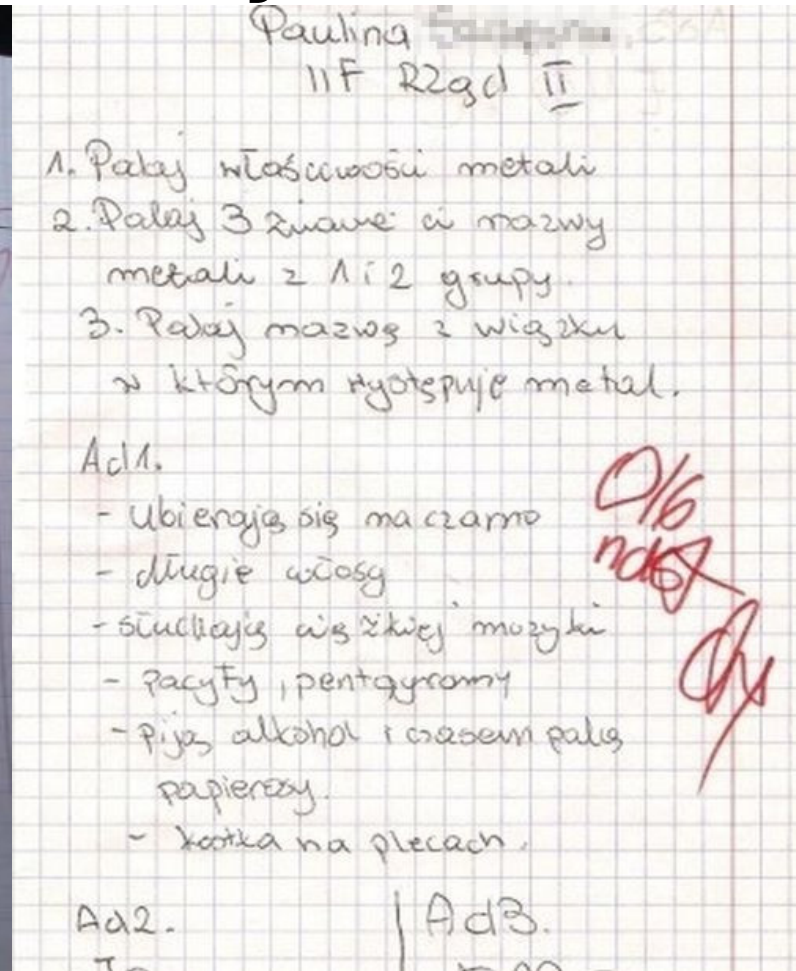 Paulina
IIF Rząd II
1. Podaj właściwości metali
2. Podaj 3 znane ci nazwy
metali z 1 i 2 grupy.
3. Podaj nazwę związku
w którym występuje metal.
Ad1.
- Ubierają się na czarno
- długie włosy
- słuchają ciężkiej muzyki
- pacyfy, pentagramy
- piją alkohol i czasem palą
papierosy.
- kostka na plecach.
0/6
ndst
Ad2.
Ad3.